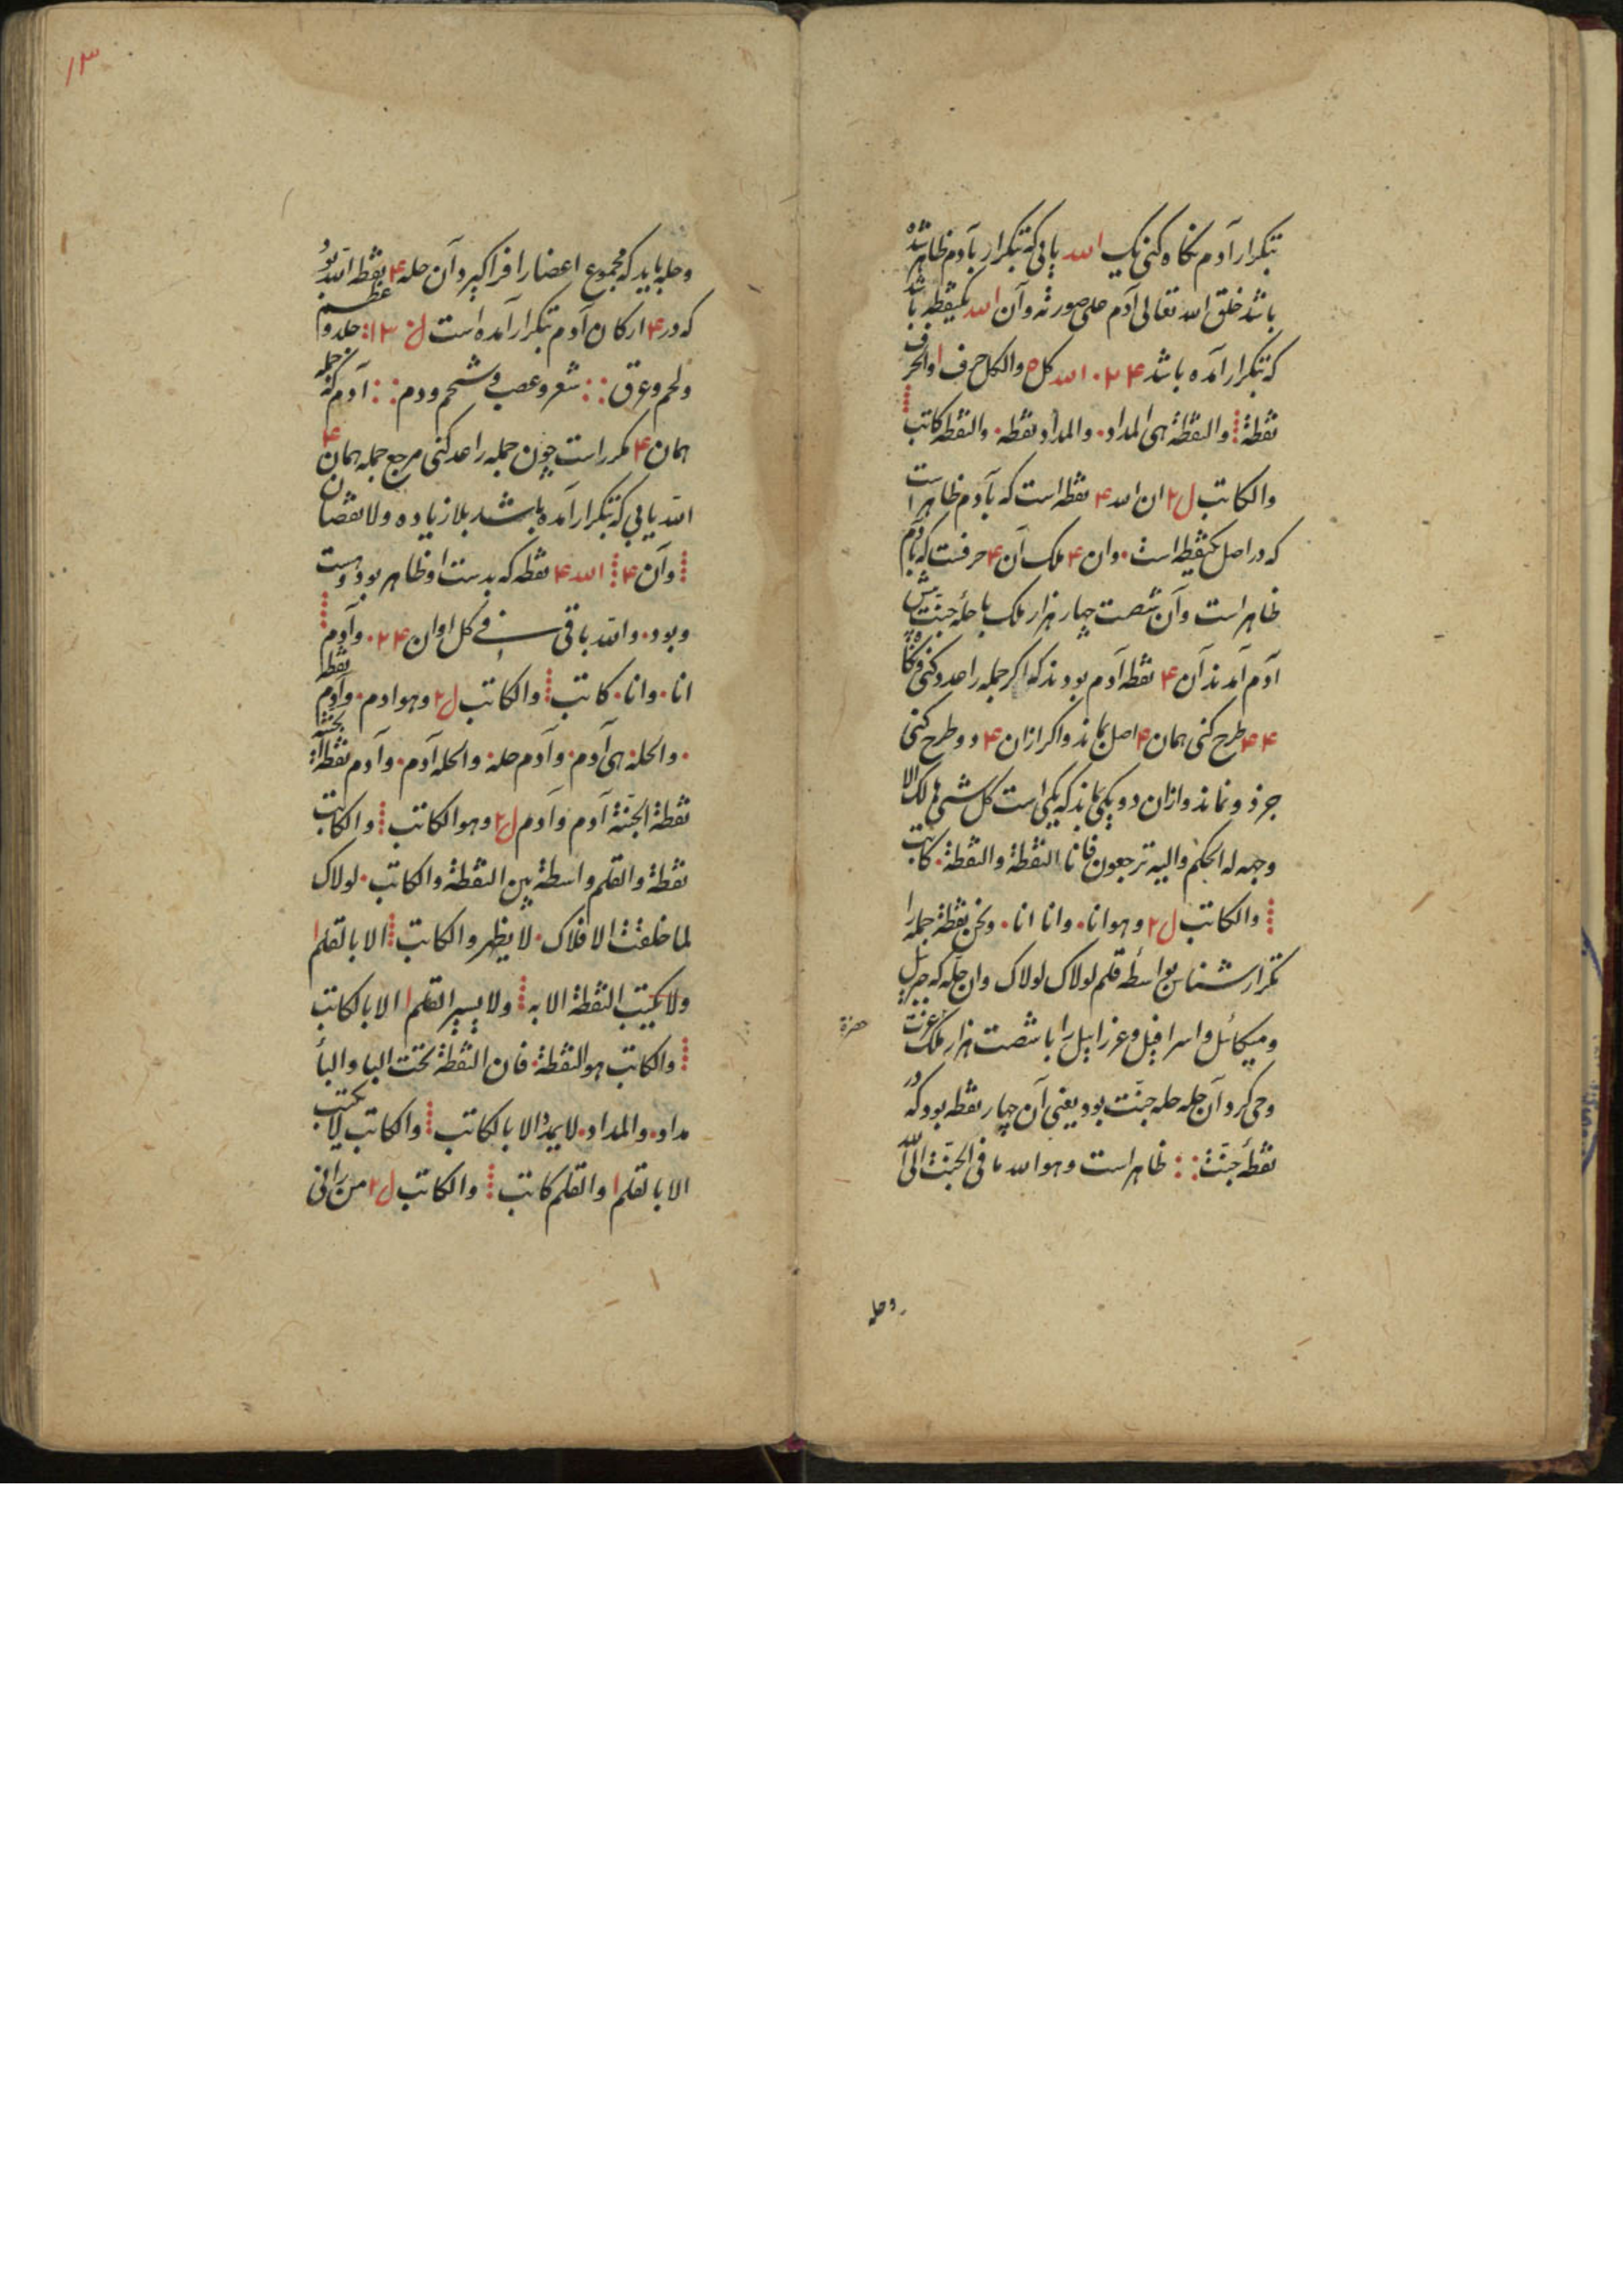 بتکرار آدم نگاه کنی یک الله یابی که بتکرار بآدم ظاهر شده
باشد خلق الله تعالی آدم علی صورته و آن الله یکنقطه باشد
که بتکرار آمده باشد ۴ ۲ ۰ الله کل ه والکل حرف ا والحرف
نقطة ⁞ والنقطة هی المداد ۰ والمداد نقطه ۰ والنقطه کاتب ⁞
والکاتب ل۲ ان الله ۴ نقطه است که بآدم ظاهر است
که در اصل یکنقطه است ۰ وان ۴ ملک آن ۴ حرفست که بآدم
ظاهر است و آن شصت چهار هزار ملک با حلهٔ جنت پیش
آدم آمدند آن ۴ نقطه آدم بودند که اکر جمله را عد و کنی
۴ ۴ طرح کنی همان ۴ اصل بماند و اکر ازان ۴ دو طرح کنی
جز دو نماند و ازان دو یکی بماند که یکی است کل شیء هالک الا
وجهه له الحکم والیه ترجعون فانا النقطة والنقطة ۰ کاتب
⁞ والکاتب ل۲ وهو انا ۰ وانا انا ۰ ونحن نقطة جمله را
تکرار شناس بواسطه قلم لولاک لولاک وان حله که جبریل
و میکائل و اسرافیل و عزراییل را با شصت هزار ملک عزت
حضرة
وحی کرد آن حله حله جنّت بود یعنی آن چهار نقطه بود که در
نقطهٔ جنّت :: ظاهر است وهو الله ما فی الجنّت الی الله
وحله
۱۳
وحله باید که مجموع اعضا را فراکیرد و آن حله ۴ نقطه الله بود
که در ۴ ارکان آدم بتکرار آمده است ل ۱۲ : جلد و عظم
ولحم وعرق :: شعر وعصب وشحم ودم :: آدم که جمله
همان ۴ مکرر است چون جمله را عد کنی مرجع جمله همان ۴
الله یابی که بتکرار آمده باشد بلا زیاده ولا نقصان
⁞ وآن ۴ ⁞ الله ۴ نقطه که بدست او ظاهر بود وهست
وبود ۰ والله باقی فی کل اوان ۲۴ ۰ وآدم ⁞
انا ۰ وانا ۰ کاتب ⁞ والکاتب ل۲ وهو ادم ۰ وآدم نقطه
۰ والحلة هی آدم ۰ وآدم حلة والحله آدم ۰ وآدم نقطة الجنة
نقطة الجنّة آدم وآدم ل۲ وهو الکاتب ⁞ والکاتب
نقطة والقلم واسطة بین النقطة والکاتب ۰ لولاک
لما خلقت الافلاک ۰ لا یظهر والکاتب ⁞ الا بالقلم ا
ولا یکتب النقطة الا به ⁞ ولا یسیر القلم ا الا بالکاتب
⁞ والکاتب هو النقطة ۰ فان النقطة تحت البا والبأ
مداد ۰ والمداد ۰ لا یمدّ الا بالکاتب ⁞ والکاتب لا یکتب
الا بالقلم ا والقلم کاتب ⁞ والکاتب ل۲ من رانی